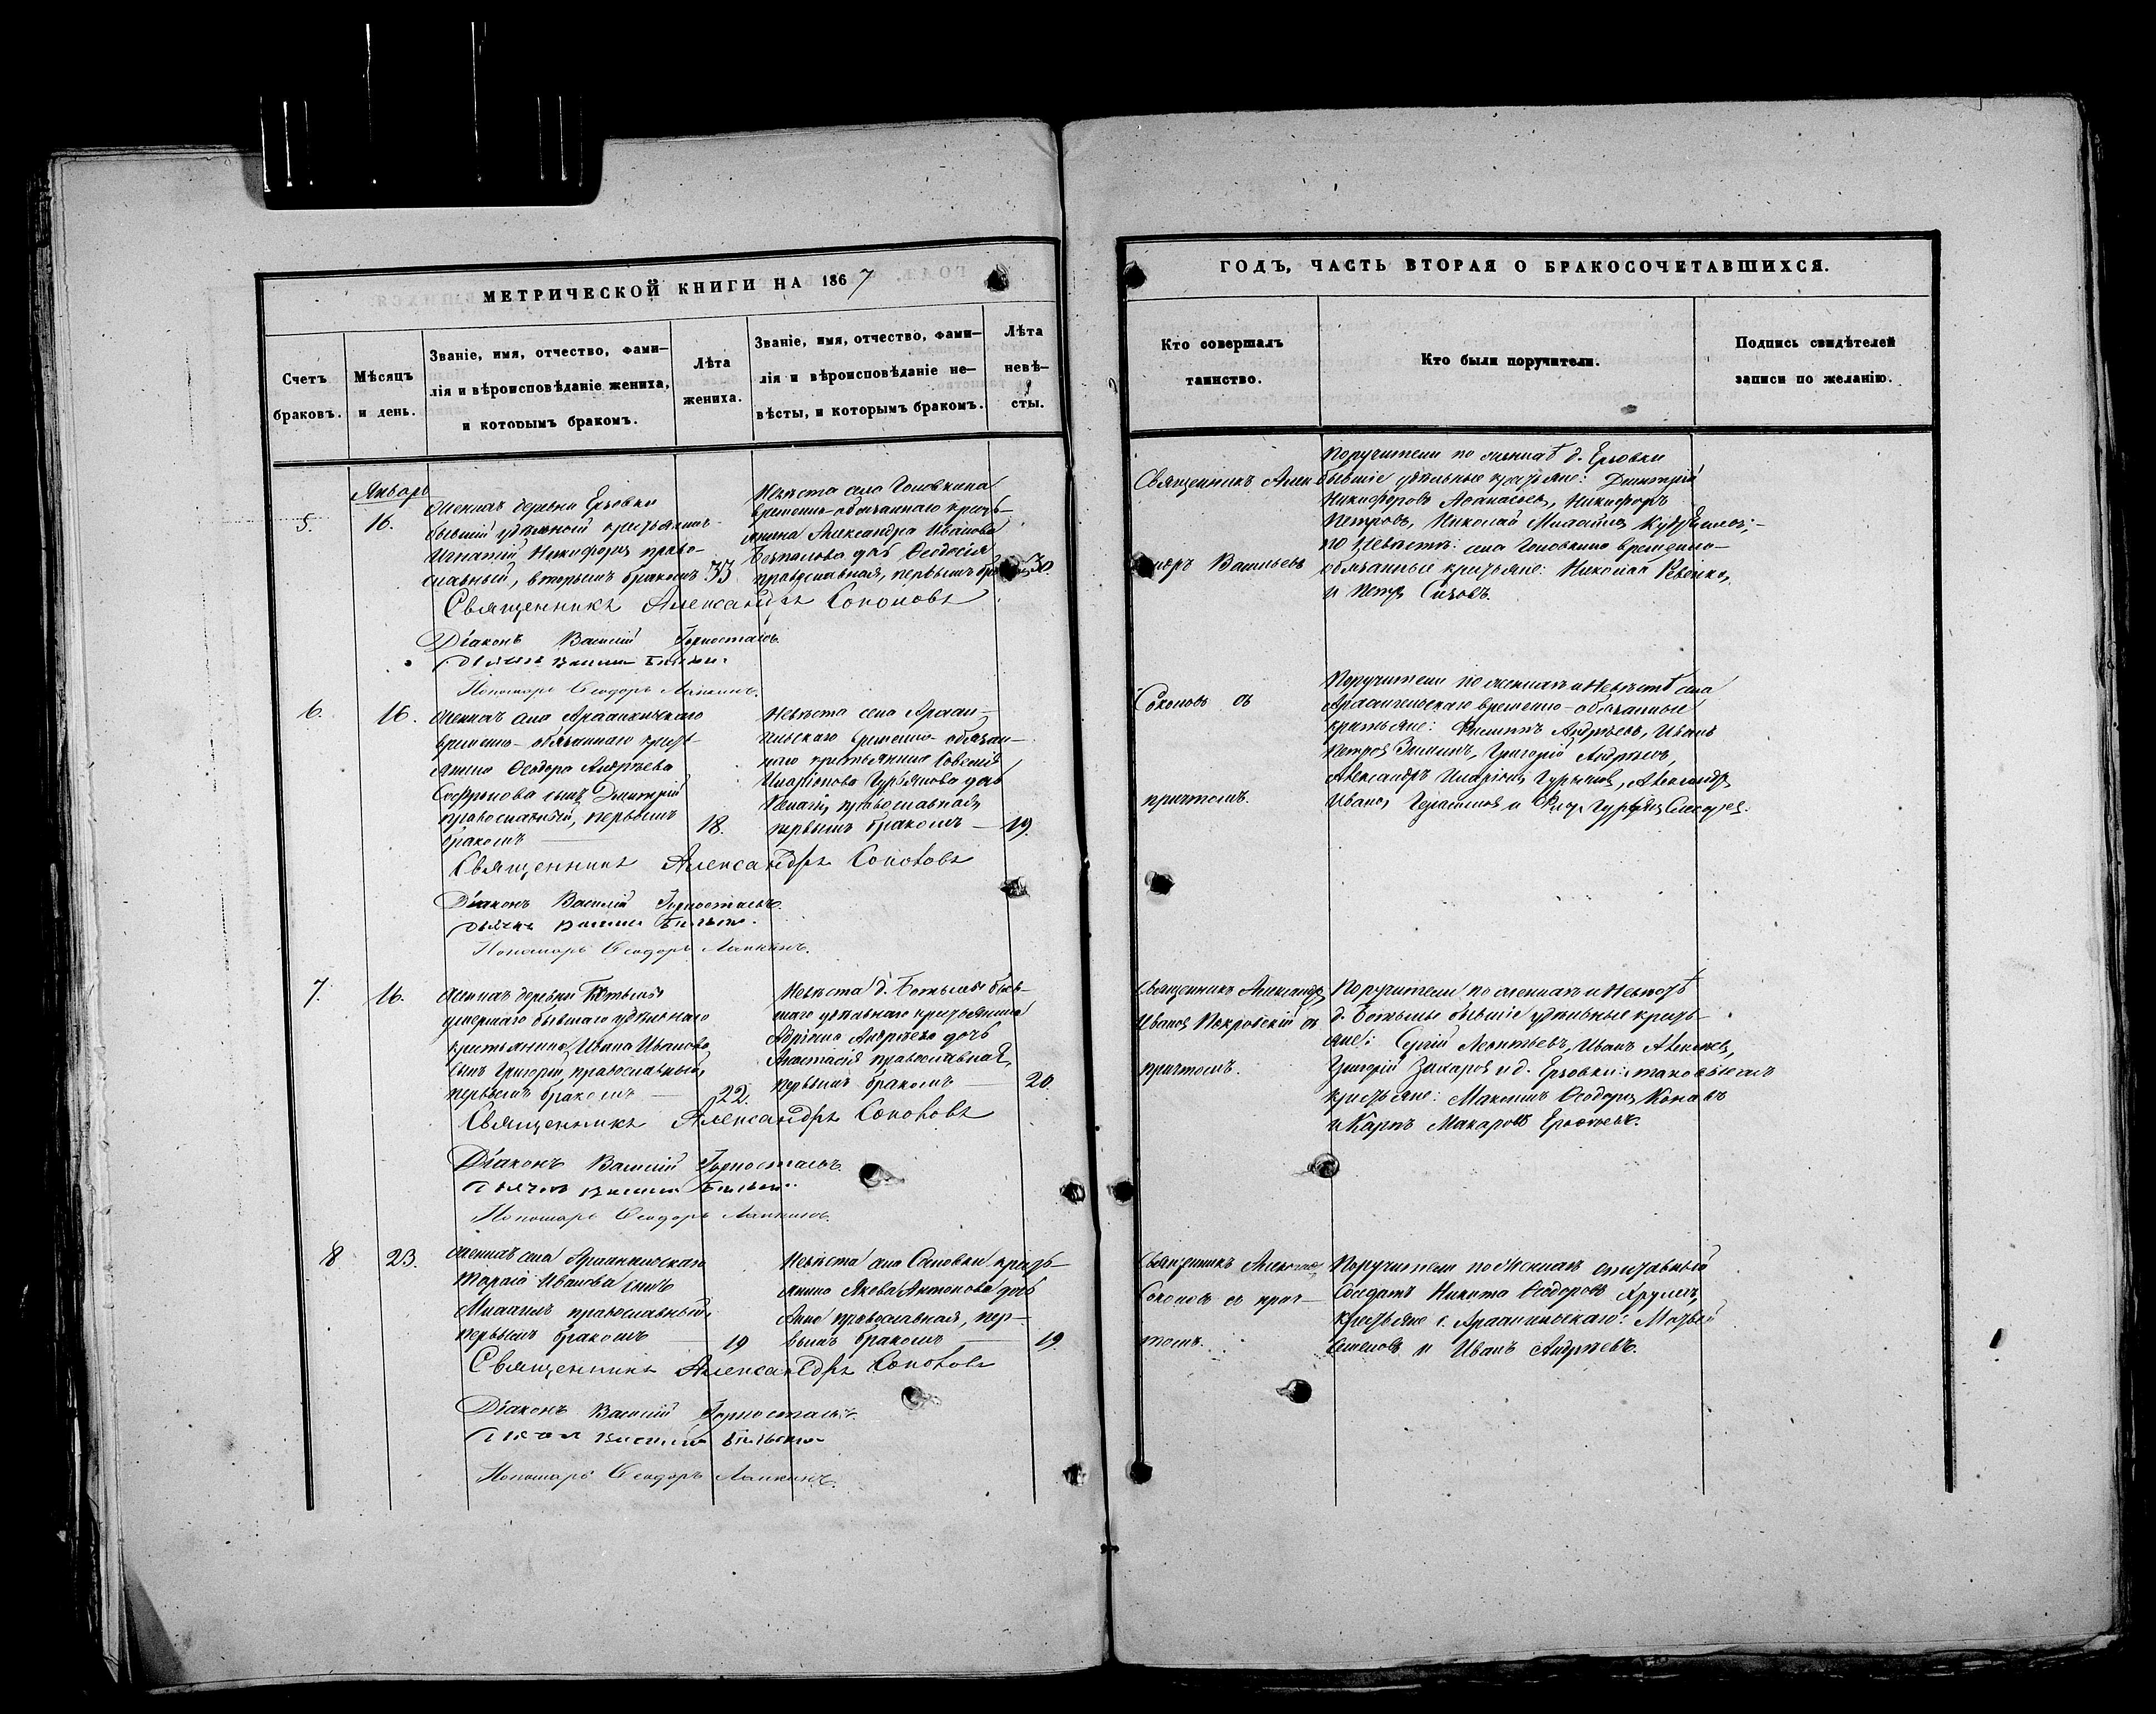 МЕТРИЧЕСКОЙ КНИГИ НА 1867
Счетъ браковъ.
Мѣсяцъ и день.
Званіе, имя, отчество, фами-
лія и вѣроисповѣданіе жениха,
и которымъ бракомъ.
Лѣта жениха.
Званіе, имя, отчество, фами-
лія и вѣроисповѣданіе не-
вѣсты, и которымъ бракомъ.
Лѣта
невѣ-
сты.
5.
Январь
16.
Женихъ деревни Ерзовки
бывшій удѣльной крестьянинъ
Игнатій Никифоровъ право-
славный, вторымъ бракомъ
33
Невѣста села Головкина
временно-обязаннаго кресть-
янина Александра Иванова
дочь Ѳеодосія
православная, первымъ
30.
Священникъ Александръ Соколовъ
Діаконъ Василій Горностаевъ
Пономарь Ѳеодоръ Лапкинъ.
6.
16.
Женихъ села Архангельскаго
временно-обязаннаго крест-
янина Ѳеодора Андреева
Софронова сынъ Дмитрій
православный, первымъ
бракомъ
18.
Невѣста села Архан-
гельскаго временно-обязан-
наго крестьянина Савелія
Иларіонова Гурьянова дочь
Пелагія, православная,
первымъ бракомъ
19.
Священникъ Александръ Соколовъ
Діаконъ Василій Горностаевъ.
Пономарь Ѳеодоръ Лапкинъ.
7.
16.
Женихъ деревни Ботьмы
умершаго бывшаго удѣльнаго
крестьянина Ивана Иванова
сынъ Григорій, православный,
первымъ бракомъ
22.
Невѣста д. Ботьмы быв-
шаго удѣльнаго крестьянина
Андреева дочь
Анастасія православная,
первымъ бракомъ
20.
Священникъ Александръ Соколовъ
Діаконъ Василій Горностаевъ
Пономарь Ѳеодоръ Лапкинъ.
8
23.
Женихъ села Архангельскаго
Иванова сынъ
Михаилъ православный,
первымъ бракомъ
19
Невѣста села Сосновки кресть-
янина Якова Антонова дочь
Анна православная, пер-
вымъ бракомъ
19.
Священникъ Александръ Соколовъ
Діаконъ Василій Горностаевъ.
Пономарь Ѳеодоръ Лапкинъ.
ГОДЪ, ЧАСТЬ ВТОРАЯ О БРАКОСОЧЕТАВШИХСЯ.
Кто совершалъ
таинство.
Кто были поручители.
Подпись свидѣтелей
записи по желанію.
Священникъ Алек-
сандръ Васильевъ
Поручители по женихѣ д. Ерзовки
бывшіе удѣльные крестьяне: Дмитрій
Никифоровъ Никифоръ
Петровъ, Николай Михайловъ
по невѣстѣ: села Головкина временно-
обязанные крестьяне: Николай
и Петръ Сизовъ.
Соколовъ съ
причтомъ.
Поручители по женихѣ и невѣстѣ села
Архангельскаго временно-обязанные
крестьяне: Филиппъ Андреевъ, Иванъ
Петровъ Зиминъ, Григорій Андреевъ,
Александръ Иларіоновъ Гурьяновъ, Александръ
Ивановъ Герасимовъ и
Священникъ Александръ
Ивановъ Покровскій съ
причтомъ.
Поручители по женихѣ и невѣстѣ
д. Ботьмы бывшіе удѣльные кресть-
яне: Сергій Леонтьевъ, Иванъ Алексѣевъ,
Григорій Захаровъ и д. Ерзовки: таковые жъ
крестьяне: Максимъ Ѳеодоровъ
и Карпъ Макаровъ
Священникъ Александръ
Соколовъ съ прич-
томъ.
Поручители по женихѣ отставный
солдатъ Никита Ѳеодоровъ
крестьяне с. Архангельскаго: Матвей
Семеновъ и Иванъ Андреевъ.